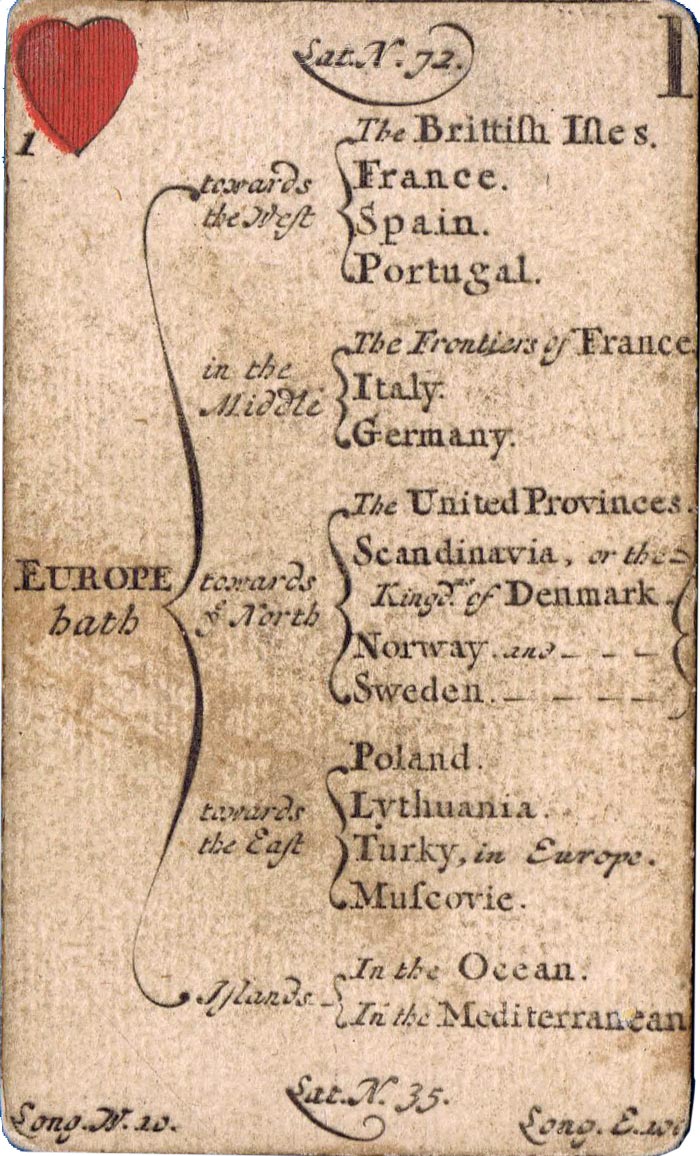 Lat. N. 72.
1
1
The Brittiſh Iſles.
towards
the Weſt
France.
Spain.
Portugal.
in the
Middle
The Frontiers of France
Italy.
Germany.
EUROPE
hath
towards
yᵉ North
The United Provinces.
Scandinavia, or the
Kingdᵐˢ of Denmark
Norway. and
Sweden.
towards
the Eaſt
Poland.
Lythuania.
Turky, in Europe.
Muſcovie.
Iſlands
In the Ocean.
In the Mediterranean
Lat. N. 35.
Long. W. 10.
Long. E.